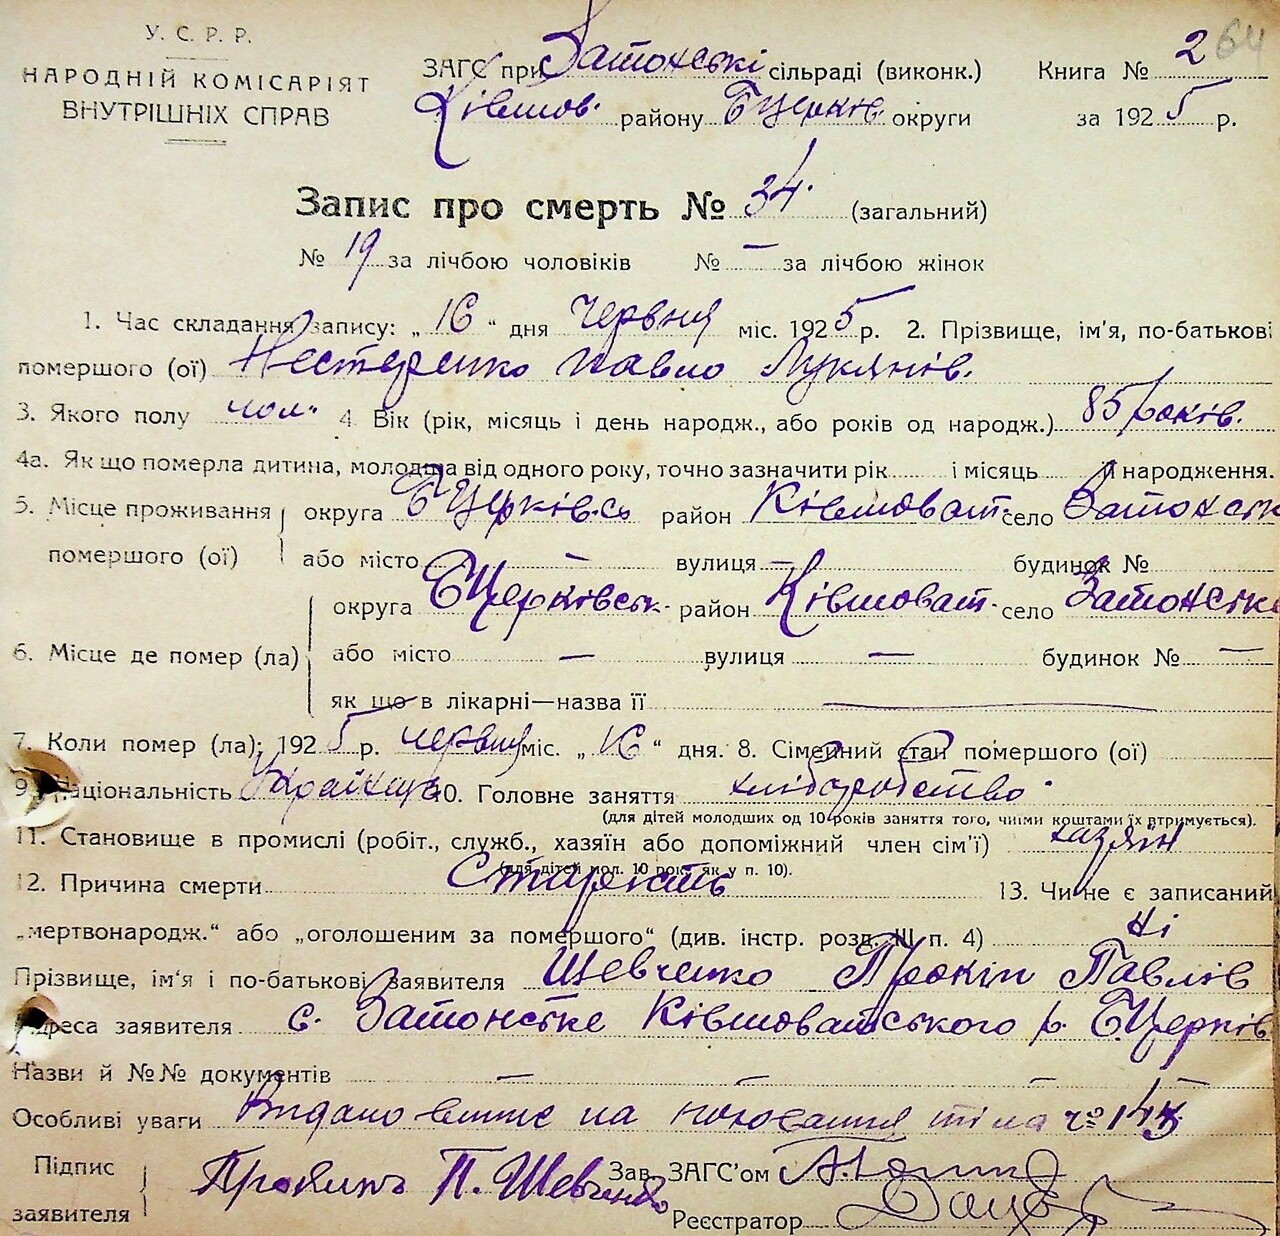 У. С. Р. Р.
НАРОДНІЙ КОМІСАРІЯТ
ВНУТРІШНІХ СПРАВ
ЗАГС при Затонські сільраді (виконк.) Книга № 2 64
Ківшов. району БЦерків. округи за 1925 р.
Запис про смерть № 34. (загальний)
№ 19 за лічбою чоловіків № — за лічбою жінок
1. Час складання запису: „16“ дня червня міс. 1925 р. 2. Прізвище, ім'я, по-батькові
помершого (ої) Нестеренко Павло Лукянів.
3. Якого полу чол. 4. Вік (рік, місяць і день народж., або років од народж.) 85 років.
4а. Як що померла дитина, молодша від одного року, точно зазначити рік і місяць її народження.
5. Місце проживання округа БЦерківсь район Ківшоват. село Затонськ
помершого (ої) або місто — вулиця — будинок №
округа БЦерківськ. район Ківшоват. село Затонське
6. Місце де помер (ла) або місто — вулиця — будинок № —
як що в лікарні—назва її —
7. Коли помер (ла): 1925 р. червня міс. „16“ дня. 8. Сімейний стан помершого (ої)
9. Національність Українець 10. Головне заняття хліборобство.
(для дітей молодших од 10 років заняття того, чиїми коштами їх втримується).
11. Становище в промислі (робіт., служб., хазяїн або допоміжний член сім'ї) хазяїн
(для дітей мол. 10 рок. як у п. 10).
12. Причина смерти Старість 13. Чи не є записаний
„мертвонародж.“ або „оголошеним за помершого“ (див. інстр. розд. III п. 4) Ні
Прізвище, ім'я і по-батькові заявителя Шевченко Прокіп Павлів
Адреса заявителя с. Затонське Ківшоватського р. БЦерків
Назви й №№ документів — — — —
Особливі уваги Видано витяг на поховання тіла №
Підпис Прокипъ П. Шевченко Зав. ЗАГС'ом
заявителя Реєстратор